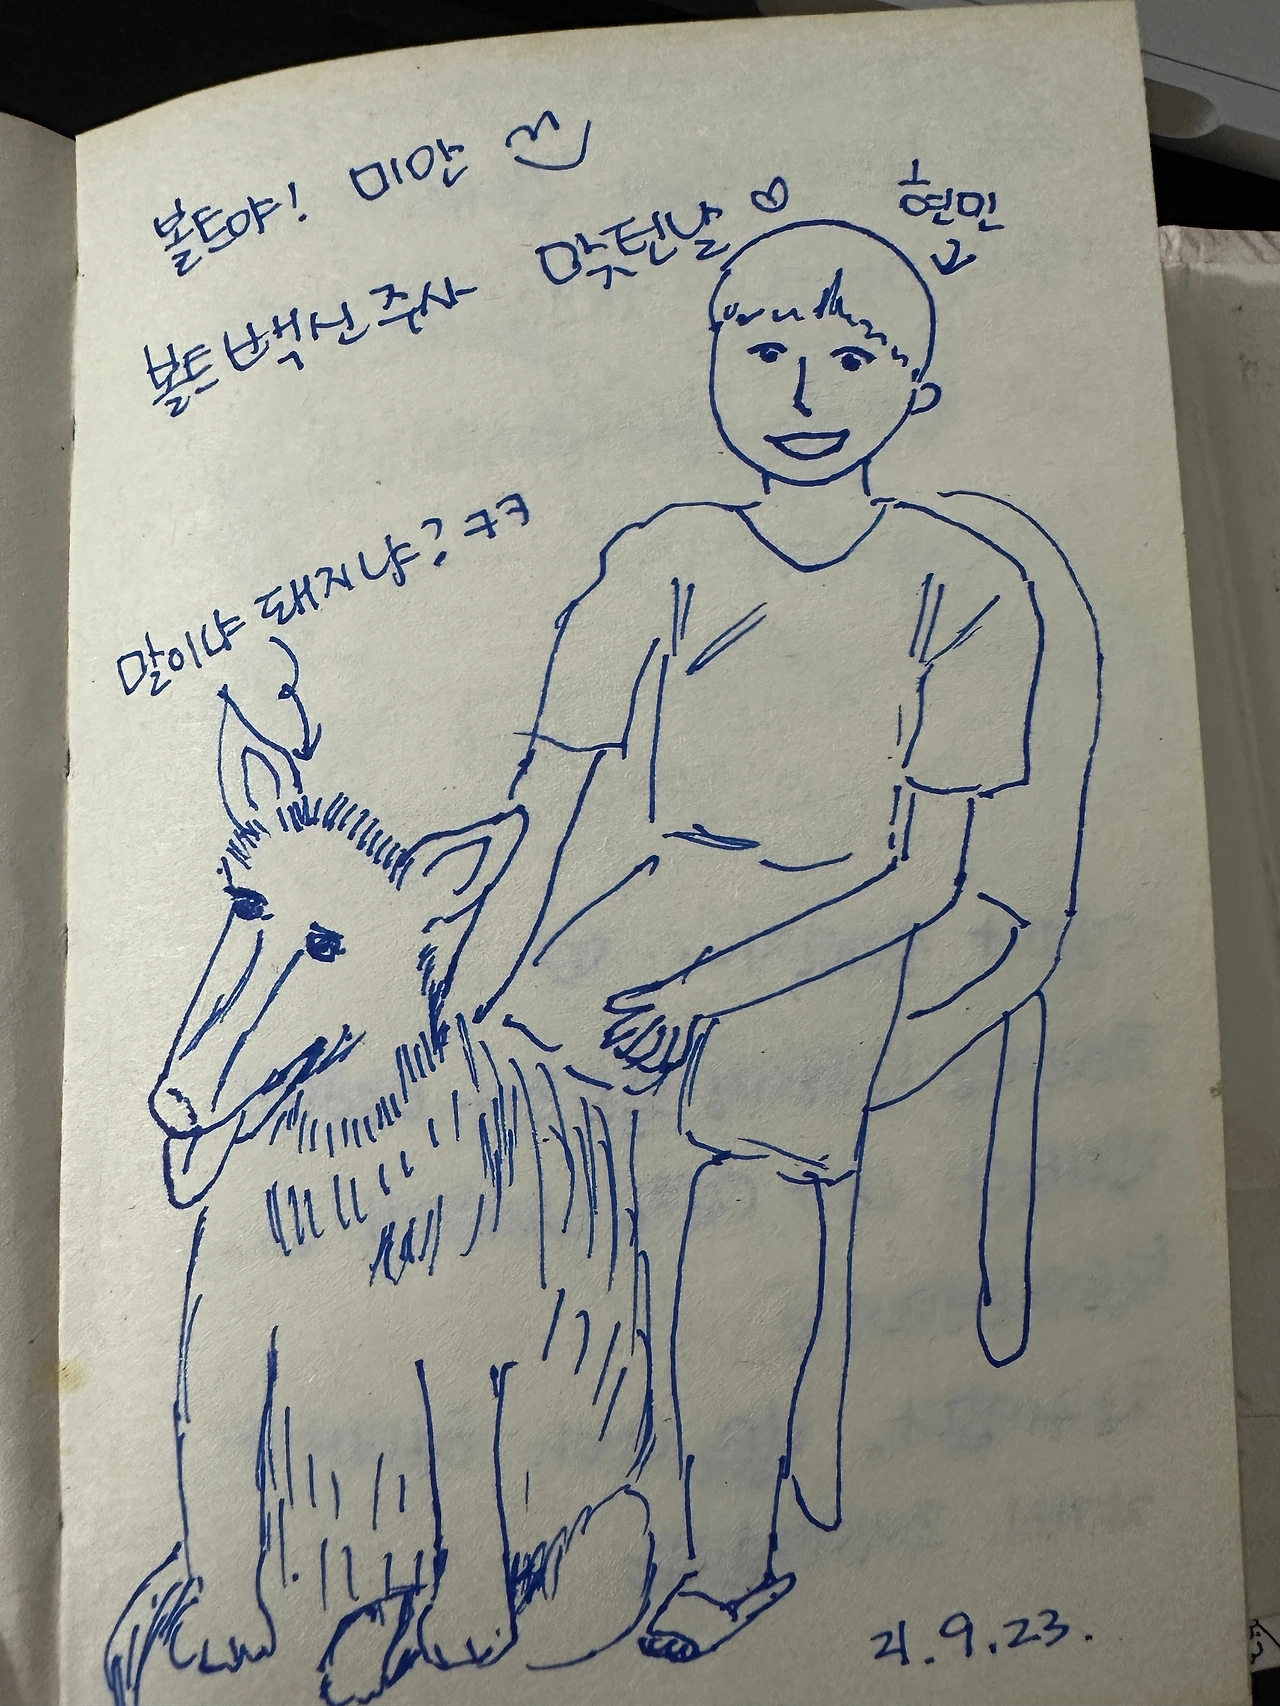 볼트야! 미안
볼트 백신 주사 맞던날
현민
말이냐 돼지냐? ㅋㅋ
21.9.23.